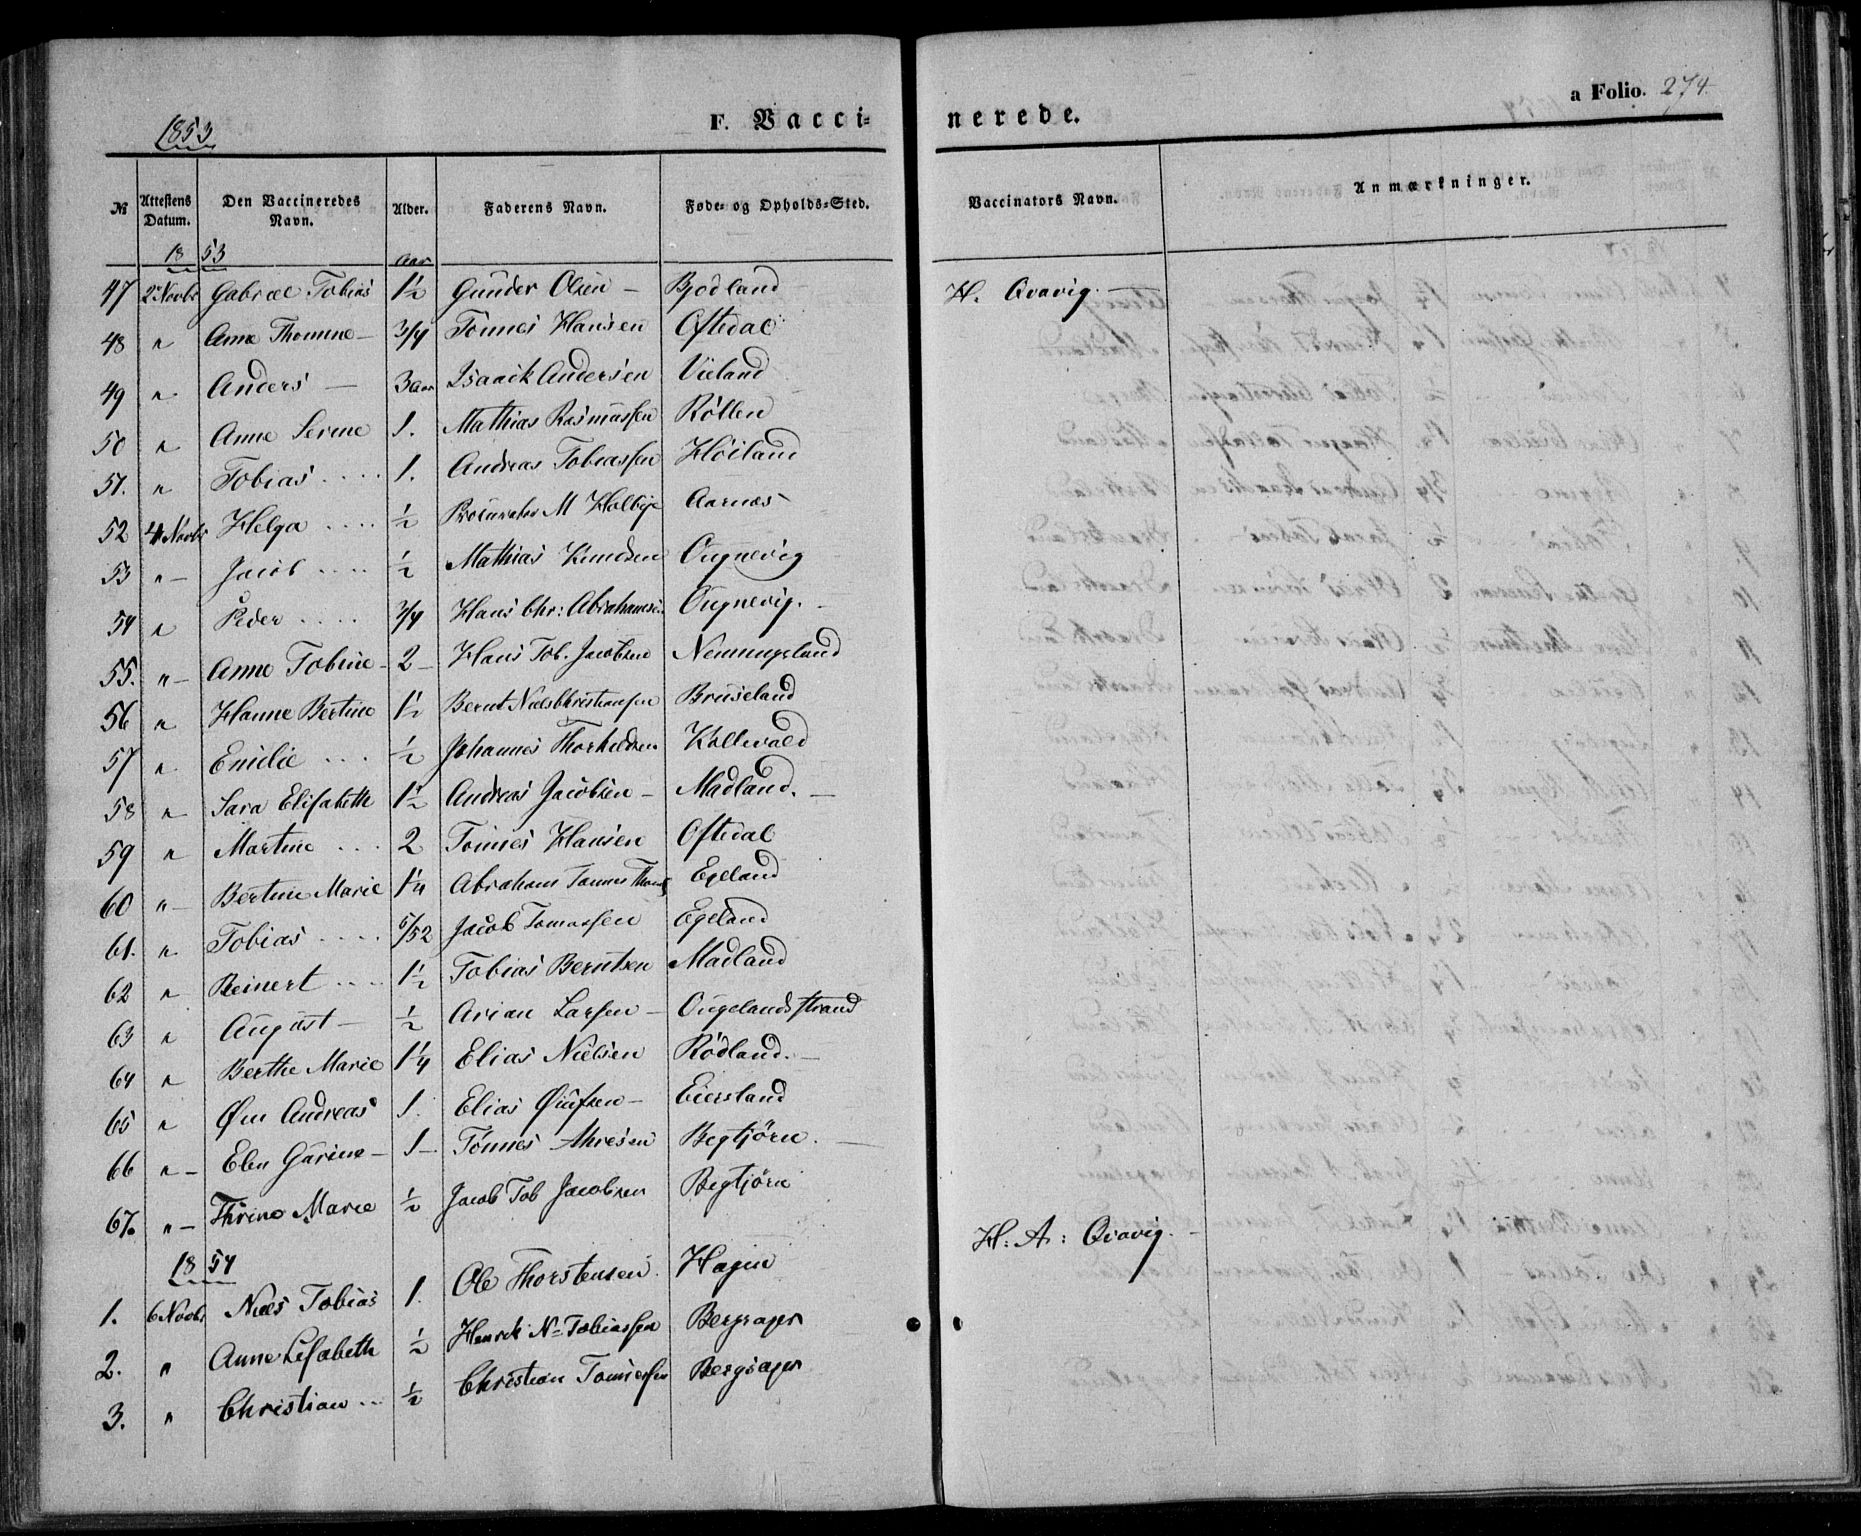 1853
F. Vaccinerede.
a Folio. 274.
№ | Attestens Datum. | Den Vaccineredes Navn. | Alder. | Faderens Navn. | Føde- og Opholds-Sted. | Vaccinators Navn. | Anmærkninger.
1853 Aar
47 2 Novbr Gabriel Tobias 1½ Gunder Olsen – Bjodland H. Qvavig. –
48 " Anne Thomine – 3/4 Tönnes Hansen Oftedal
49 " Anders – 3 Aar Isaack Andersen Vieland
50 " Anne Serine 1. Mathias Rasmussen Röllen
51. " Tobias .... 1. Andreas Tobiassen Høiland
52 4 Novbr Helga .... ½ Procurator M Holbye Aarnæs
53 " – Jacob .... ½ Mathias Knudsen Ougnevig
54 " Peder .... 3/4 Hans Chr: Abrahamsen Ougnevig. –
55. " – Anne Tobine – 2 – Hans Tob. Jacobsen Nemmingeland
56 " Hanne Bertine 1½ Bernt Niels Christiansen Bruseland
57 " Emilie ... ½ Johannes Thorkildsen Kollevold
58 " – Sara Elisabeth 1½ Andreas Jacobsen – Madland. –
59 " Martine ... 2 Tönnes Hansen Oftedal
60 " – Bertine Marie 1¼ Abraham Tønnes Thomas Egeland
61. " Tobias .... 5/52 Jacob Tomassen Egeland
62 " Reinert .... 1½ Tobias Berntsen Madland
63 " August – ½ Arian Larsen – Ougelandsstrand
64 " Berthe Marie 1¼ Elias Nielsen Rödland. –
65 " Øen Andreas 1. Elias Öiufsen – Eiersland
66 " – Elen Gurine – 1 – Tönnes Ahresen Begtjørn. –
67. " – Thrine Marie ½ Jacob Tob Jacobsen Begtjörn
1854
1. 6 Novbr Niels Tobias 1. Ole Thorstensen Hagen H: A: Qvavig. –
2. " Anne Lisabeth ½ Henrik N= Tobiassen Bergsager
3. " Christian ... ½ Christian Tønnessen Bergsager